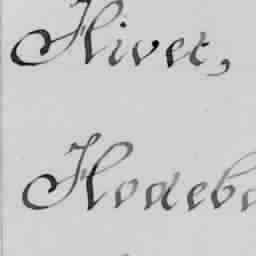 Hivet,
Hodebo